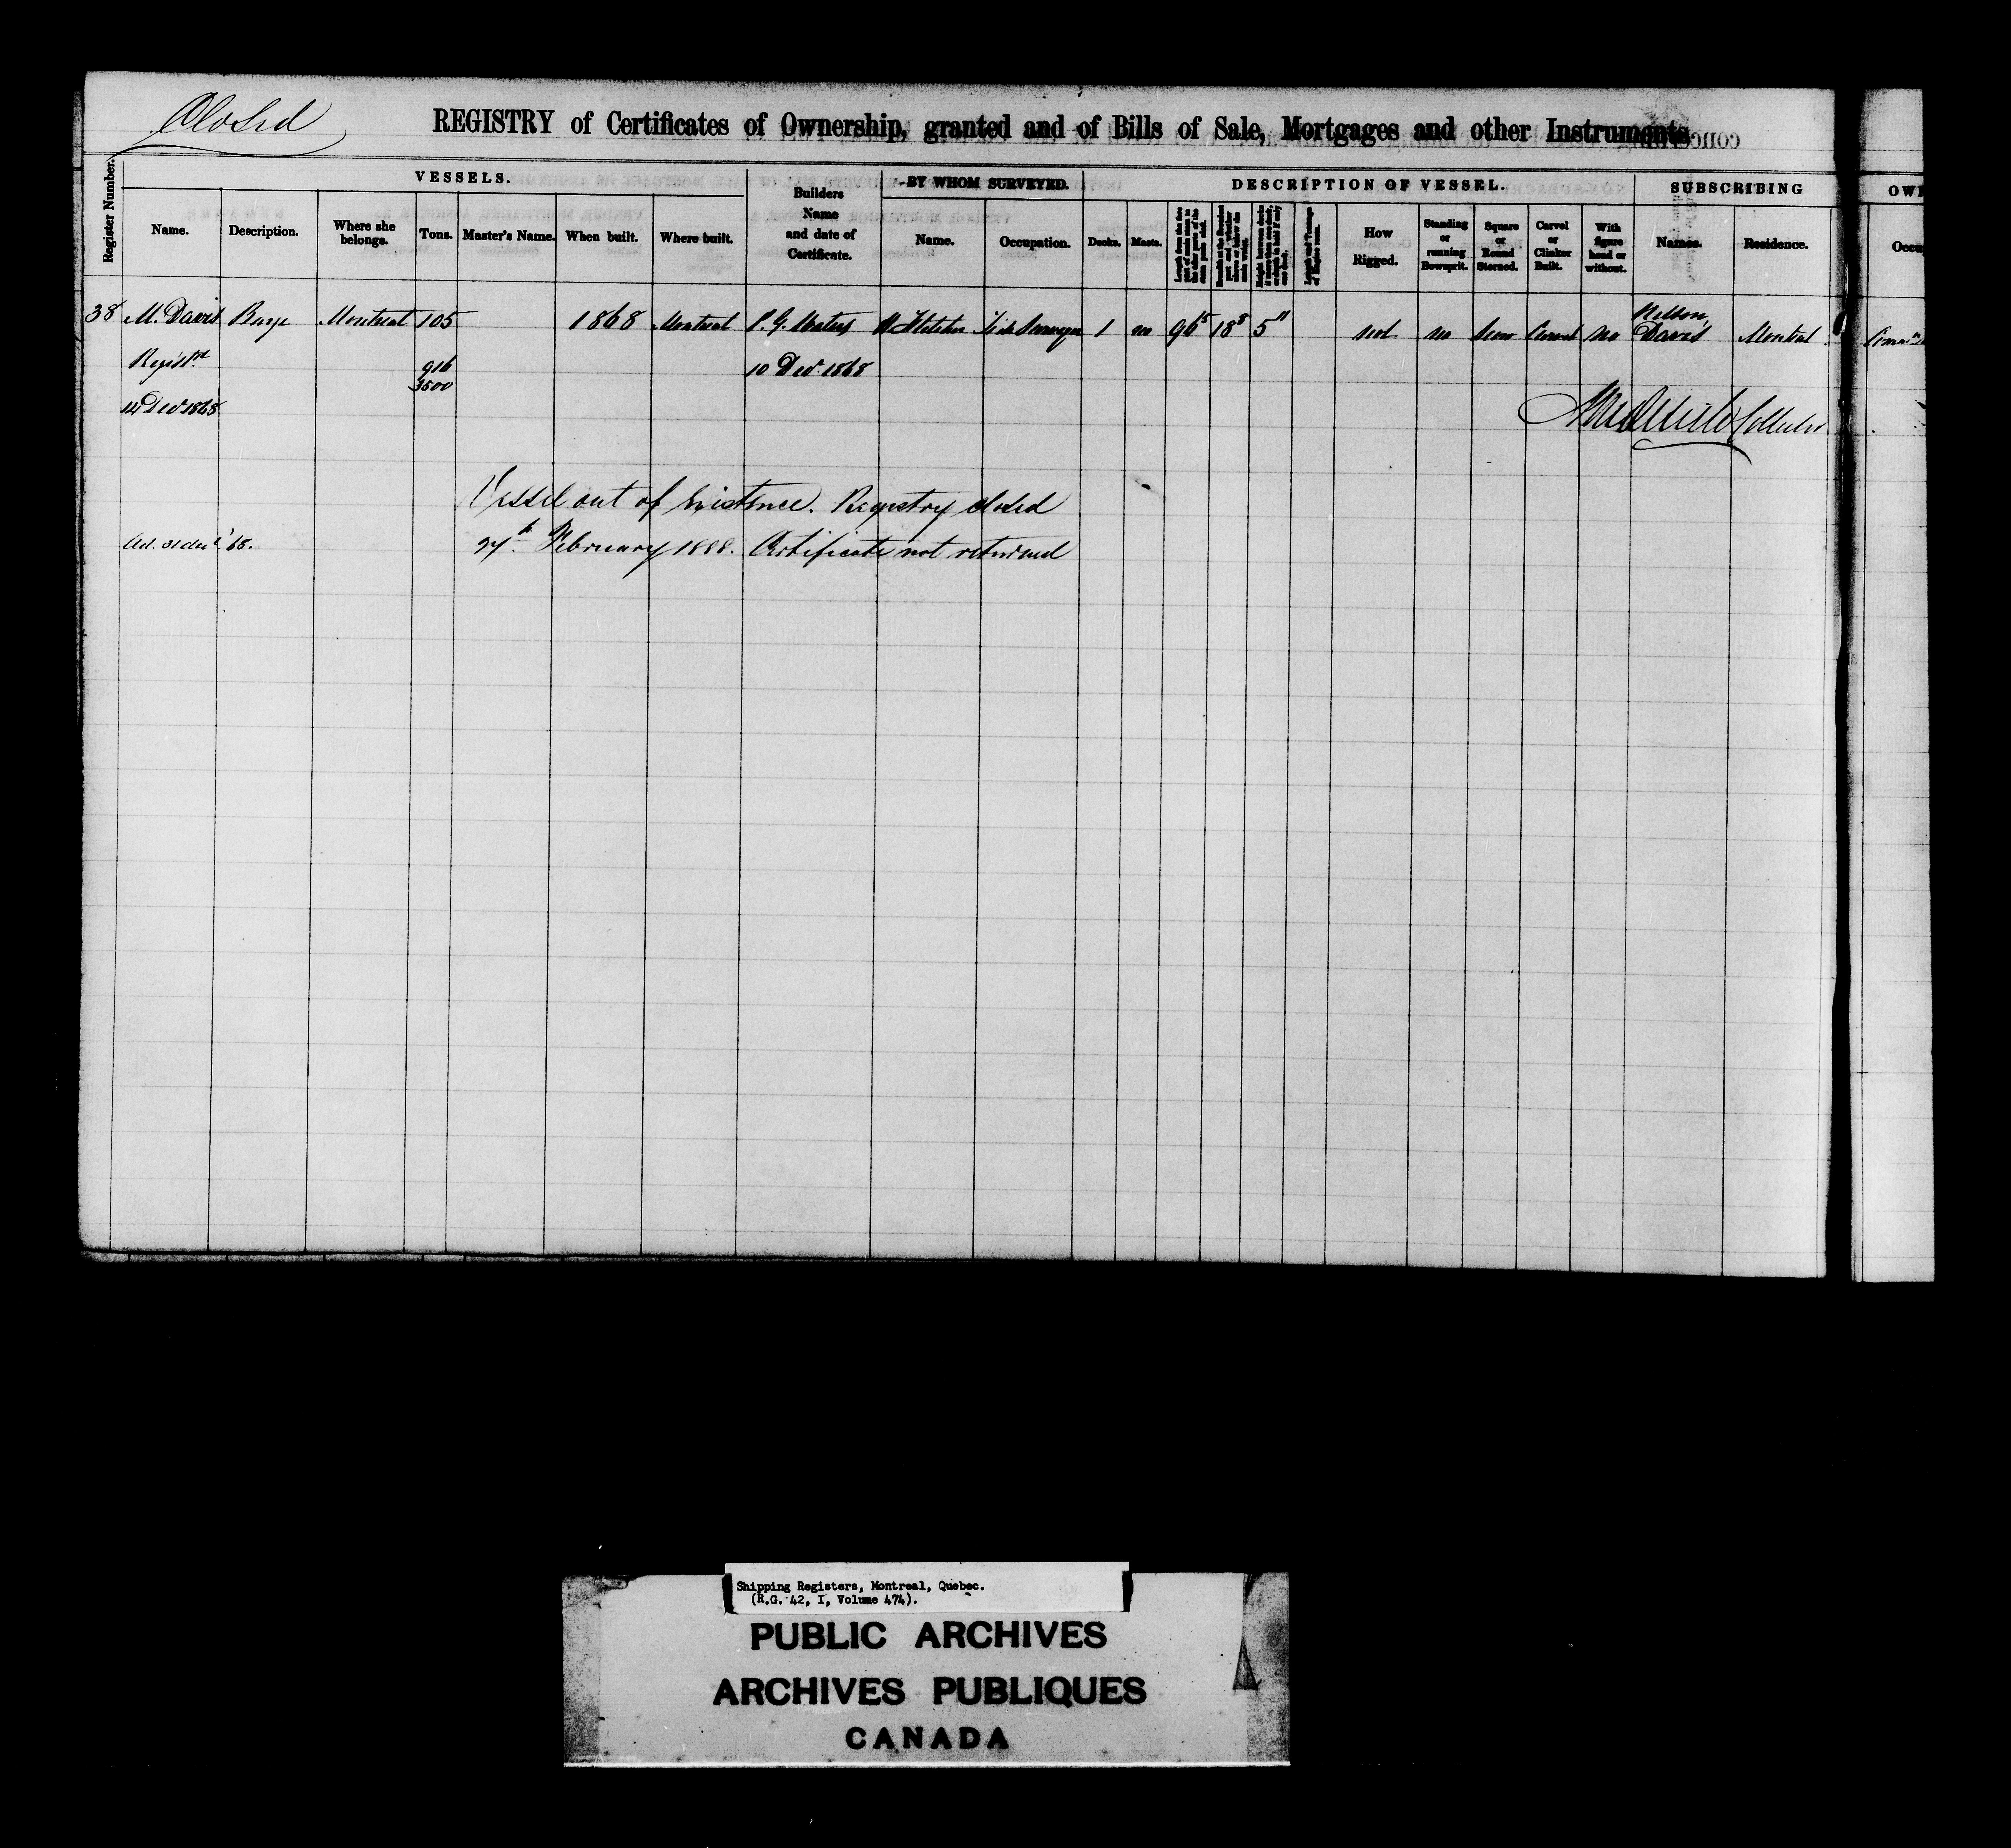 Closed
REGISTRY of Certificates of Ownership, granted and of Bills of Sale, Mortgages and other Instruments
Register Number.
VESSELS.
Name.
Description.
Where she belongs.
Tons.
Master's Name.
When built.
Where built.
Builders
Name
and date of
Certificate.
BY WHOM SURVEYED.
Name.
Occupation.
DESCRIPTION OF VESSEL.
Decks.
Masts.
How
Rigged.
Standing
or
running
Bowsprit.
Square
or
Round
Sterned.
Carvel
or
Clinker
Built.
With
figure
head or
without.
SUBSCRIBING
Names.
Residence.
OWN
Occu
38 M. Davis Barge Montreal 105 1868 Montreal P. G. Waters Fletcher Tide Surveyor 1 no 96 5 18 8 5 11 not no Carvel no Nelson Davis Montreal
Regist'd 916
3500
10 Decr 1868
14 Decr 1868
Collector
Vessel out of Existence. Registry closed
27th February 1888. Certificate not returned
Shipping Registers, Montreal, Quebec.
(R.G. 42, I, Volume 474).
PUBLIC ARCHIVES
ARCHIVES PUBLIQUES
CANADA